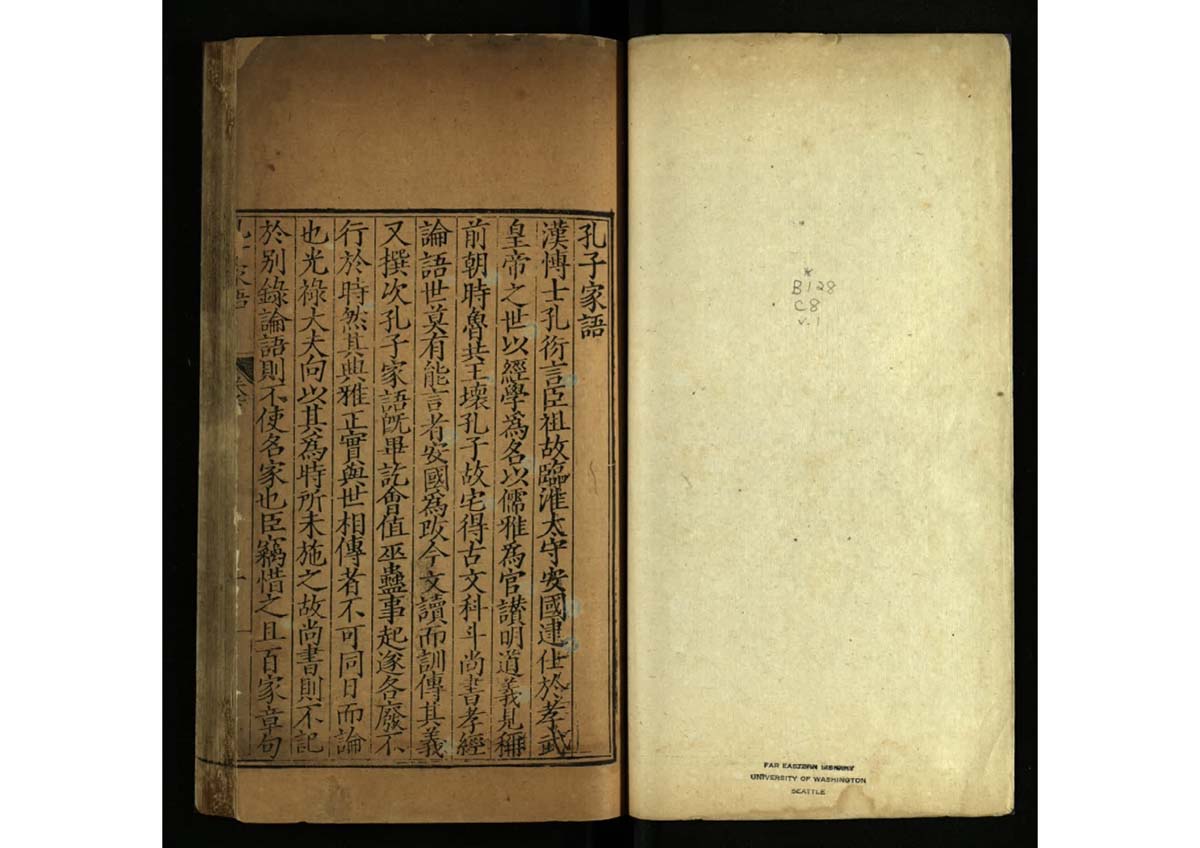 *
B128
C8
v.1
FAR EASTERN LIBRARY
UNIVERSITY OF WASHINGTON
SEATTLE
孔子家語
漢愽士孔衍言臣祖故臨淮太守安國逮仕於孝武
皇帝之世以經學爲名以儒雅爲官讃明道義見稱
前朝時魯共王壞孔子故宅得古文科斗尚書孝經
論語世莫有能言者安國爲改今文讀而訓傳其義
又撰次孔子家語旣畢訖會值巫蠱事起遂各廢不
行於時然其典雅正實與世相傳者不可同日而論
也光祿大夫向以其爲時所未施之故尚書則不記
於别錄論語則不使名家也臣竊惜之且百家章句
家語